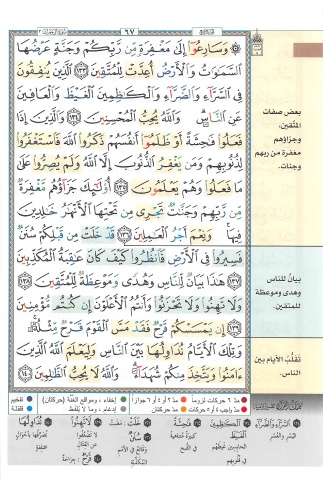 الجزء ٤
٦٧
سورة آل عمران ٣
وَسَارِعُوٓا۟ إِلَىٰ مَغْفِرَةٍ مِّن رَّبِّكُمْ وَجَنَّةٍ عَرْضُهَا
ٱلسَّمَٰوَٰتُ وَٱلْأَرْضُ أُعِدَّتْ لِلْمُتَّقِينَ ١٣٣ ٱلَّذِينَ يُنفِقُونَ
فِى ٱلسَّرَّآءِ وَٱلضَّرَّآءِ وَٱلْكَٰظِمِينَ ٱلْغَيْظَ وَٱلْعَافِينَ
عَنِ ٱلنَّاسِ وَٱللَّهُ يُحِبُّ ٱلْمُحْسِنِينَ ١٣٤ وَٱلَّذِينَ إِذَا
فَعَلُوا۟ فَٰحِشَةً أَوْ ظَلَمُوٓا۟ أَنفُسَهُمْ ذَكَرُوا۟ ٱللَّهَ فَٱسْتَغْفَرُوا۟
لِذُنُوبِهِمْ وَمَن يَغْفِرُ ٱلذُّنُوبَ إِلَّا ٱللَّهُ وَلَمْ يُصِرُّوا۟ عَلَىٰ
مَا فَعَلُوا۟ وَهُمْ يَعْلَمُونَ ١٣٥ أُو۟لَٰٓئِكَ جَزَآؤُهُم مَّغْفِرَةٌ
مِّن رَّبِّهِمْ وَجَنَّٰتٌ تَجْرِى مِن تَحْتِهَا ٱلْأَنْهَٰرُ خَٰلِدِينَ
فِيهَا وَنِعْمَ أَجْرُ ٱلْعَٰمِلِينَ ١٣٦ قَدْ خَلَتْ مِن قَبْلِكُمْ سُنَنٌ
فَسِيرُوا۟ فِى ٱلْأَرْضِ فَٱنظُرُوا۟ كَيْفَ كَانَ عَٰقِبَةُ ٱلْمُكَذِّبِينَ
١٣٧ هَٰذَا بَيَانٌ لِّلنَّاسِ وَهُدًى وَمَوْعِظَةٌ لِّلْمُتَّقِينَ ١٣٨
وَلَا تَهِنُوا۟ وَلَا تَحْزَنُوا۟ وَأَنتُمُ ٱلْأَعْلَوْنَ إِن كُنتُم مُّؤْمِنِينَ
١٣٩ إِن يَمْسَسْكُمْ قَرْحٌ فَقَدْ مَسَّ ٱلْقَوْمَ قَرْحٌ مِّثْلُهُۥ
وَتِلْكَ ٱلْأَيَّامُ نُدَاوِلُهَا بَيْنَ ٱلنَّاسِ وَلِيَعْلَمَ ٱللَّهُ ٱلَّذِينَ
ءَامَنُوا۟ وَيَتَّخِذَ مِنكُمْ شُهَدَآءَ وَٱللَّهُ لَا يُحِبُّ ٱلظَّٰلِمِينَ ١٤٠
بعض صفات
المتّقين،
وجزاؤهم
مغفرة من ربهم
وجنات.
بيانٌ للناس
وهدى وموعظة
للمتقين.
تقلّب الأيام بين
الناس.
مدّ ٦ حركات لزوماً
مدّ ٢ أو ٤ أو ٦ جوازاً
إخفاء، ومواقع الغُنّة (حركتان)
تفخيم
مدّ واجب ٤ أو ٥ حركات
مدّ حركتان
إدغام، وما لا يُلفظ
قلقلة
السَّرَّاءِ وَالضَّرَّاءِ
اليُسْرِ والعُسْرِ
الْكَاظِمِينَ الْغَيْظَ
الحابسين غيظهم
في قلوبهم
فَاحِشَةً
خَلَتْ
مَضَتْ
سُنَنٌ
وقائع في الأمم
المكذِّبة
لَا تَهِنُوا
لا تضعُفُوا
عن القتال
قَرْحٌ
جراحة
نُدَاوِلُهَا
نُصَرِّفُها بأحوالٍ